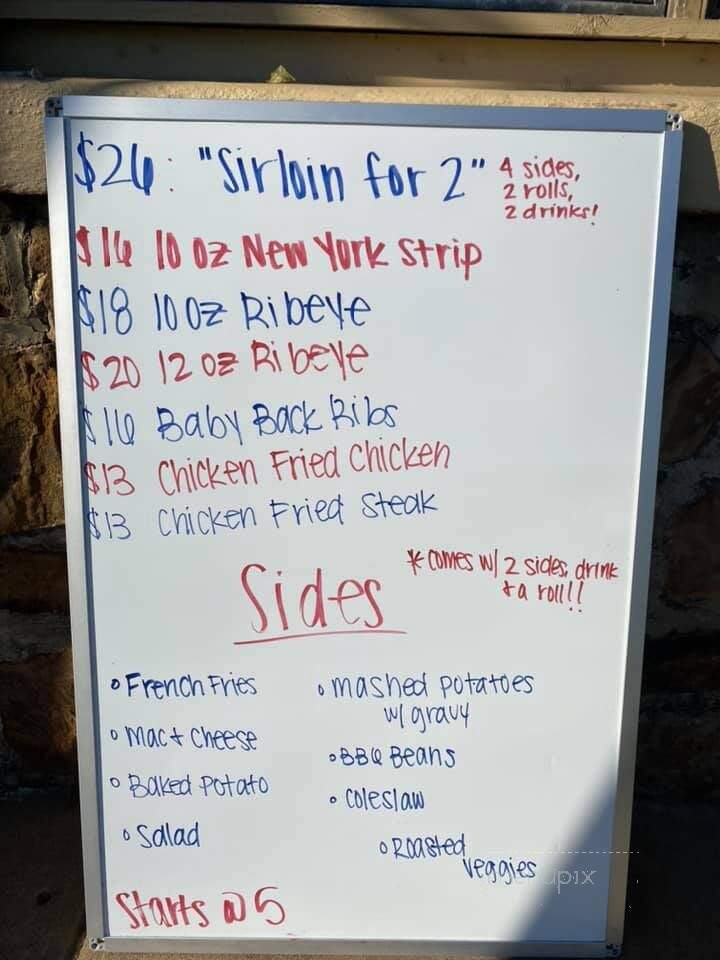 $26: "Sirloin for 2" 4 sides,
2 rolls,
2 drinks!
$16 10 oz New York Strip
$18 10 oz Ribeye
$20 12 oz Ribeye
$16 Baby Back Ribs
$13 Chicken Fried Chicken
$13 Chicken Fried Steak
* comes w/ 2 sides, drink
+ a roll!!
Sides
• French Fries
• Mac + Cheese
• Baked Potato
• Salad
• mashed potatoes
w/ gravy
• BBQ Beans
• coleslaw
• Roasted
veggies
Starts @ 5